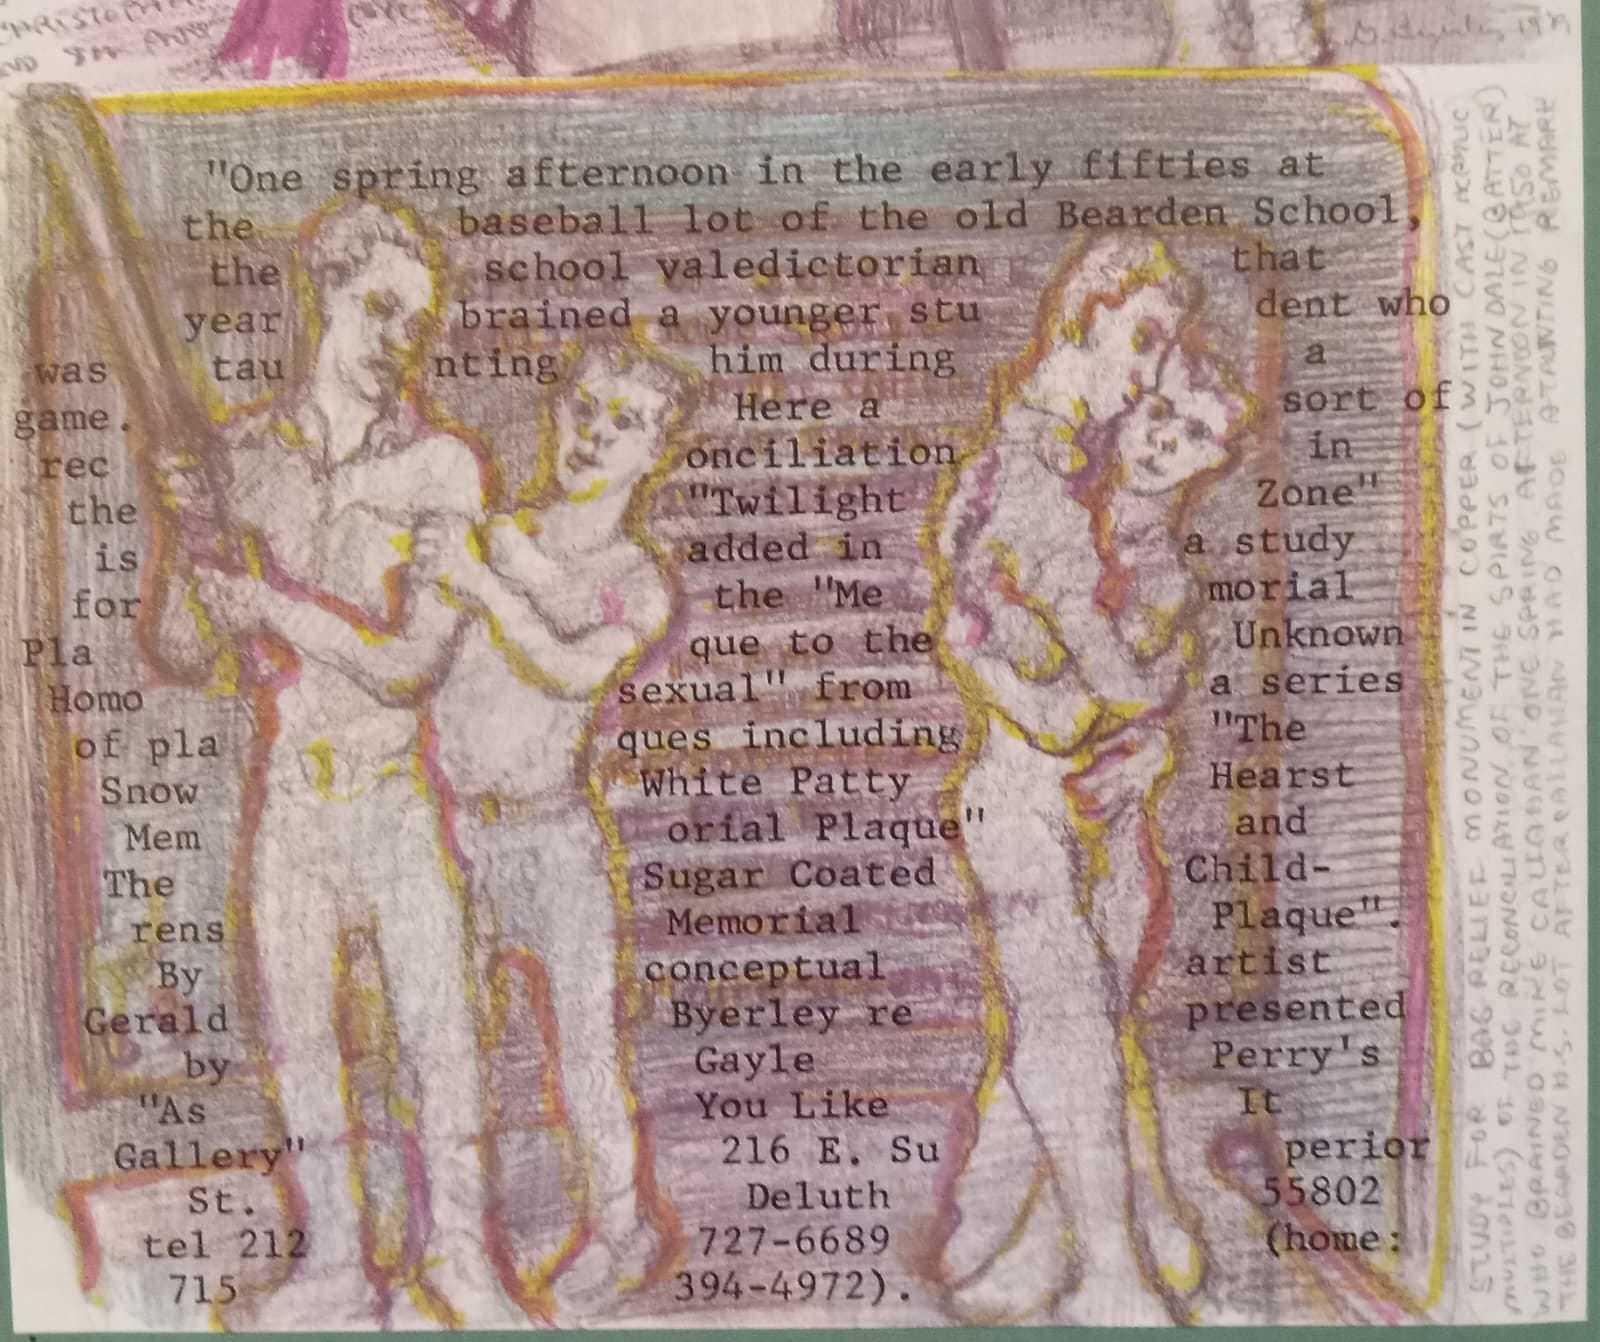 "One spring afternoon in the early fifties at
the baseball lot of the old Bearden School,
the school valedictorian that
year brained a younger stu dent who
was tau nting him during a
game. Here a sort of
rec onciliation in
the "Twilight Zone"
is added in a study
for the "Me morial
Pla que to the Unknown
Homo sexual" from a series
of pla ques including "The
Snow White Patty Hearst
Mem orial Plaque" and
The Sugar Coated Child-
rens Memorial Plaque".
By conceptual artist
Gerald Byerley re presented
by Gayle Perry's
"As You Like It
Gallery" 216 E. Su perior
St. Deluth 55802
tel 212 727-6689 (home:
715 394-4972).
STUDY FOR BAG RELIEF MONUMENT IN COPPER (WITH CAST
MULTIPLES) OF THE RECONCILIATION OF THE SPIRTS OF JOHN DALE (BATTER)
WHO BRAINED MIKE CALLAHAN ONE SPRING AFTERNOON IN 1950 AT
THE BEARDEN H.S. LOT AFTER CALLAHAN HAD MADE A TAUNTING REMARK